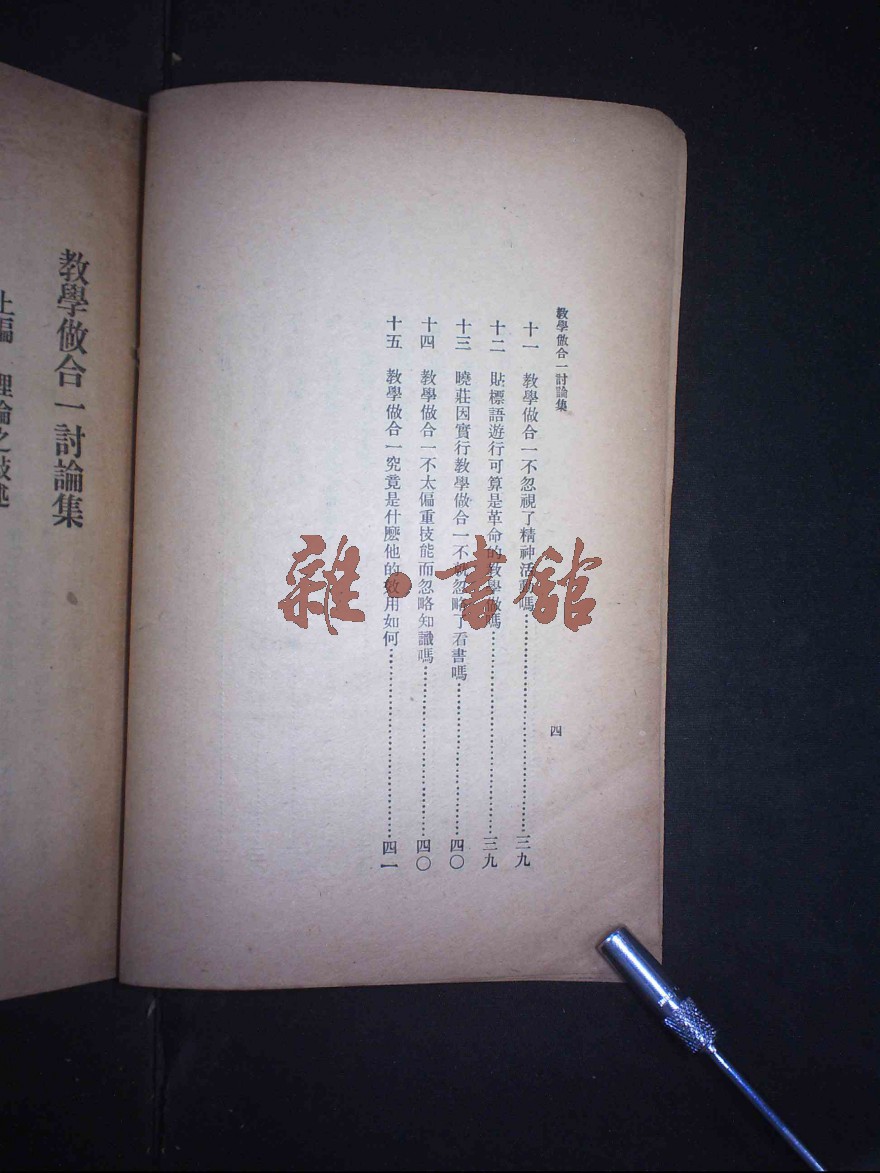 教學做合一討論集
十一 教學做合一不忽視了精神活動嗎……三九
十二 貼標語遊行可算是革命的教學做嗎……三九
十三 曉莊因實行教學做合一不就忽略了看書嗎……四〇
十四 教學做合一不太偏重技能而忽略知識嗎……四〇
十五 教學做合一究竟是什麽他的效用如何……四一
四
雜·書館
教學做合一討論集
上編 理論之敍述